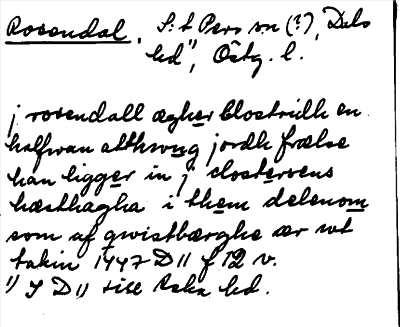 Rosendal, S:t Pers sn (?), Dals
hd¹⁾, Östg. l.
j rosendall ægher klostridh en
halfwan atthwng jordh frælse
han ligger in j closterens
hæsthagha i them delenom
som af qwistbærghe ær wt
takin 1447 D 11 f 12 v.
1) I D 11 till Aska hd.